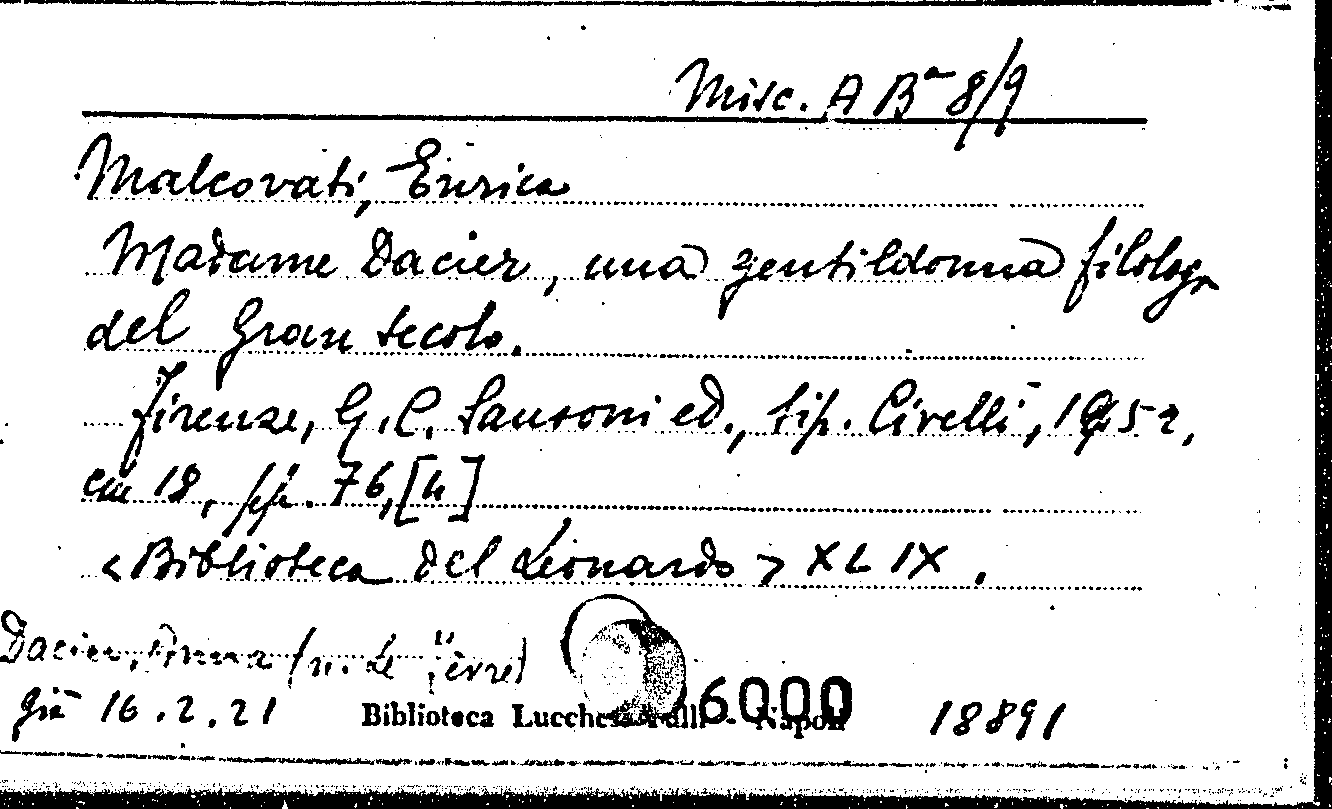 Misc. A Bª 8/9
Malcovati, Enrica
Madame Dacier, una gentildonna filologa
del Gran secolo.
Firenze, G. C. Sansoni ed., tip. Civelli, 1952,
cm 18, pp. 76, [4]
<Biblioteca del Leonardo> XLIX.
Dacier, Anna (n. Le
già 16.2.21
Biblioteca Lucchesi Palli - Napoli
6000
18891